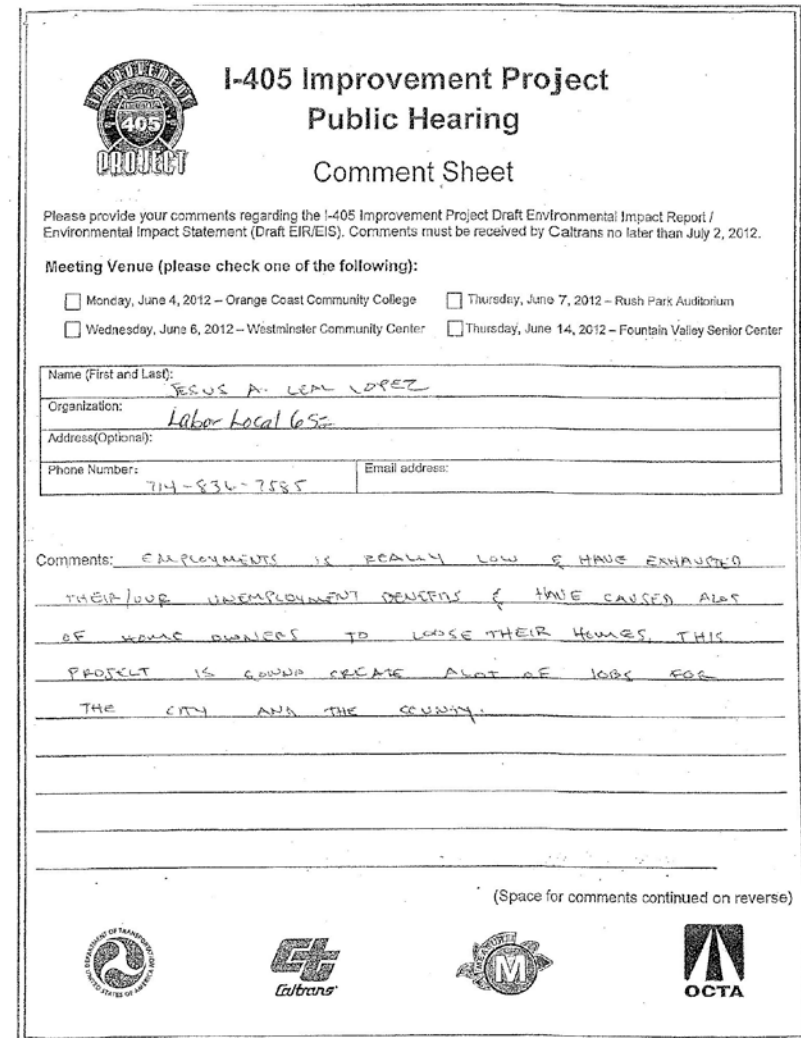 IMPROVEMENT
405
PROJECT
I-405 Improvement Project
Public Hearing
Comment Sheet
Please provide your comments regarding the I-405 Improvement Project Draft Environmental Impact Report /
Environmental Impact Statement (Draft EIR/EIS). Comments must be received by Caltrans no later than July 2, 2012.
Meeting Venue (please check one of the following):
Monday, June 4, 2012 – Orange Coast Community College
Thursday, June 7, 2012 – Rush Park Auditorium
Wednesday, June 6, 2012 – Westminster Community Center
Thursday, June 14, 2012 – Fountain Valley Senior Center
Name (First and Last):
JESUS A. LEAL LOPEZ
Organization:
Labor Local 652
Address(Optional):
Phone Number:
714-836-7585
Email address:
Comments: EMPLOYMENTS IS REALLY LOW & HAVE EXHAUSTED
THEIR/OUR UNEMPLOYMENT BENEFITS & HAVE CAUSED ALOT
OF HOME OWNERS TO LOOSE THEIR HOMES. THIS
PROJECT IS GOUNA CREATE ALOT OF JOBS FOR
THE CITY AND THE COUNTY.
(Space for comments continued on reverse)
DEPARTMENT OF TRANSPORTATION
UNITED STATES OF AMERICA
Caltrans
MEASURE
M
OCTA